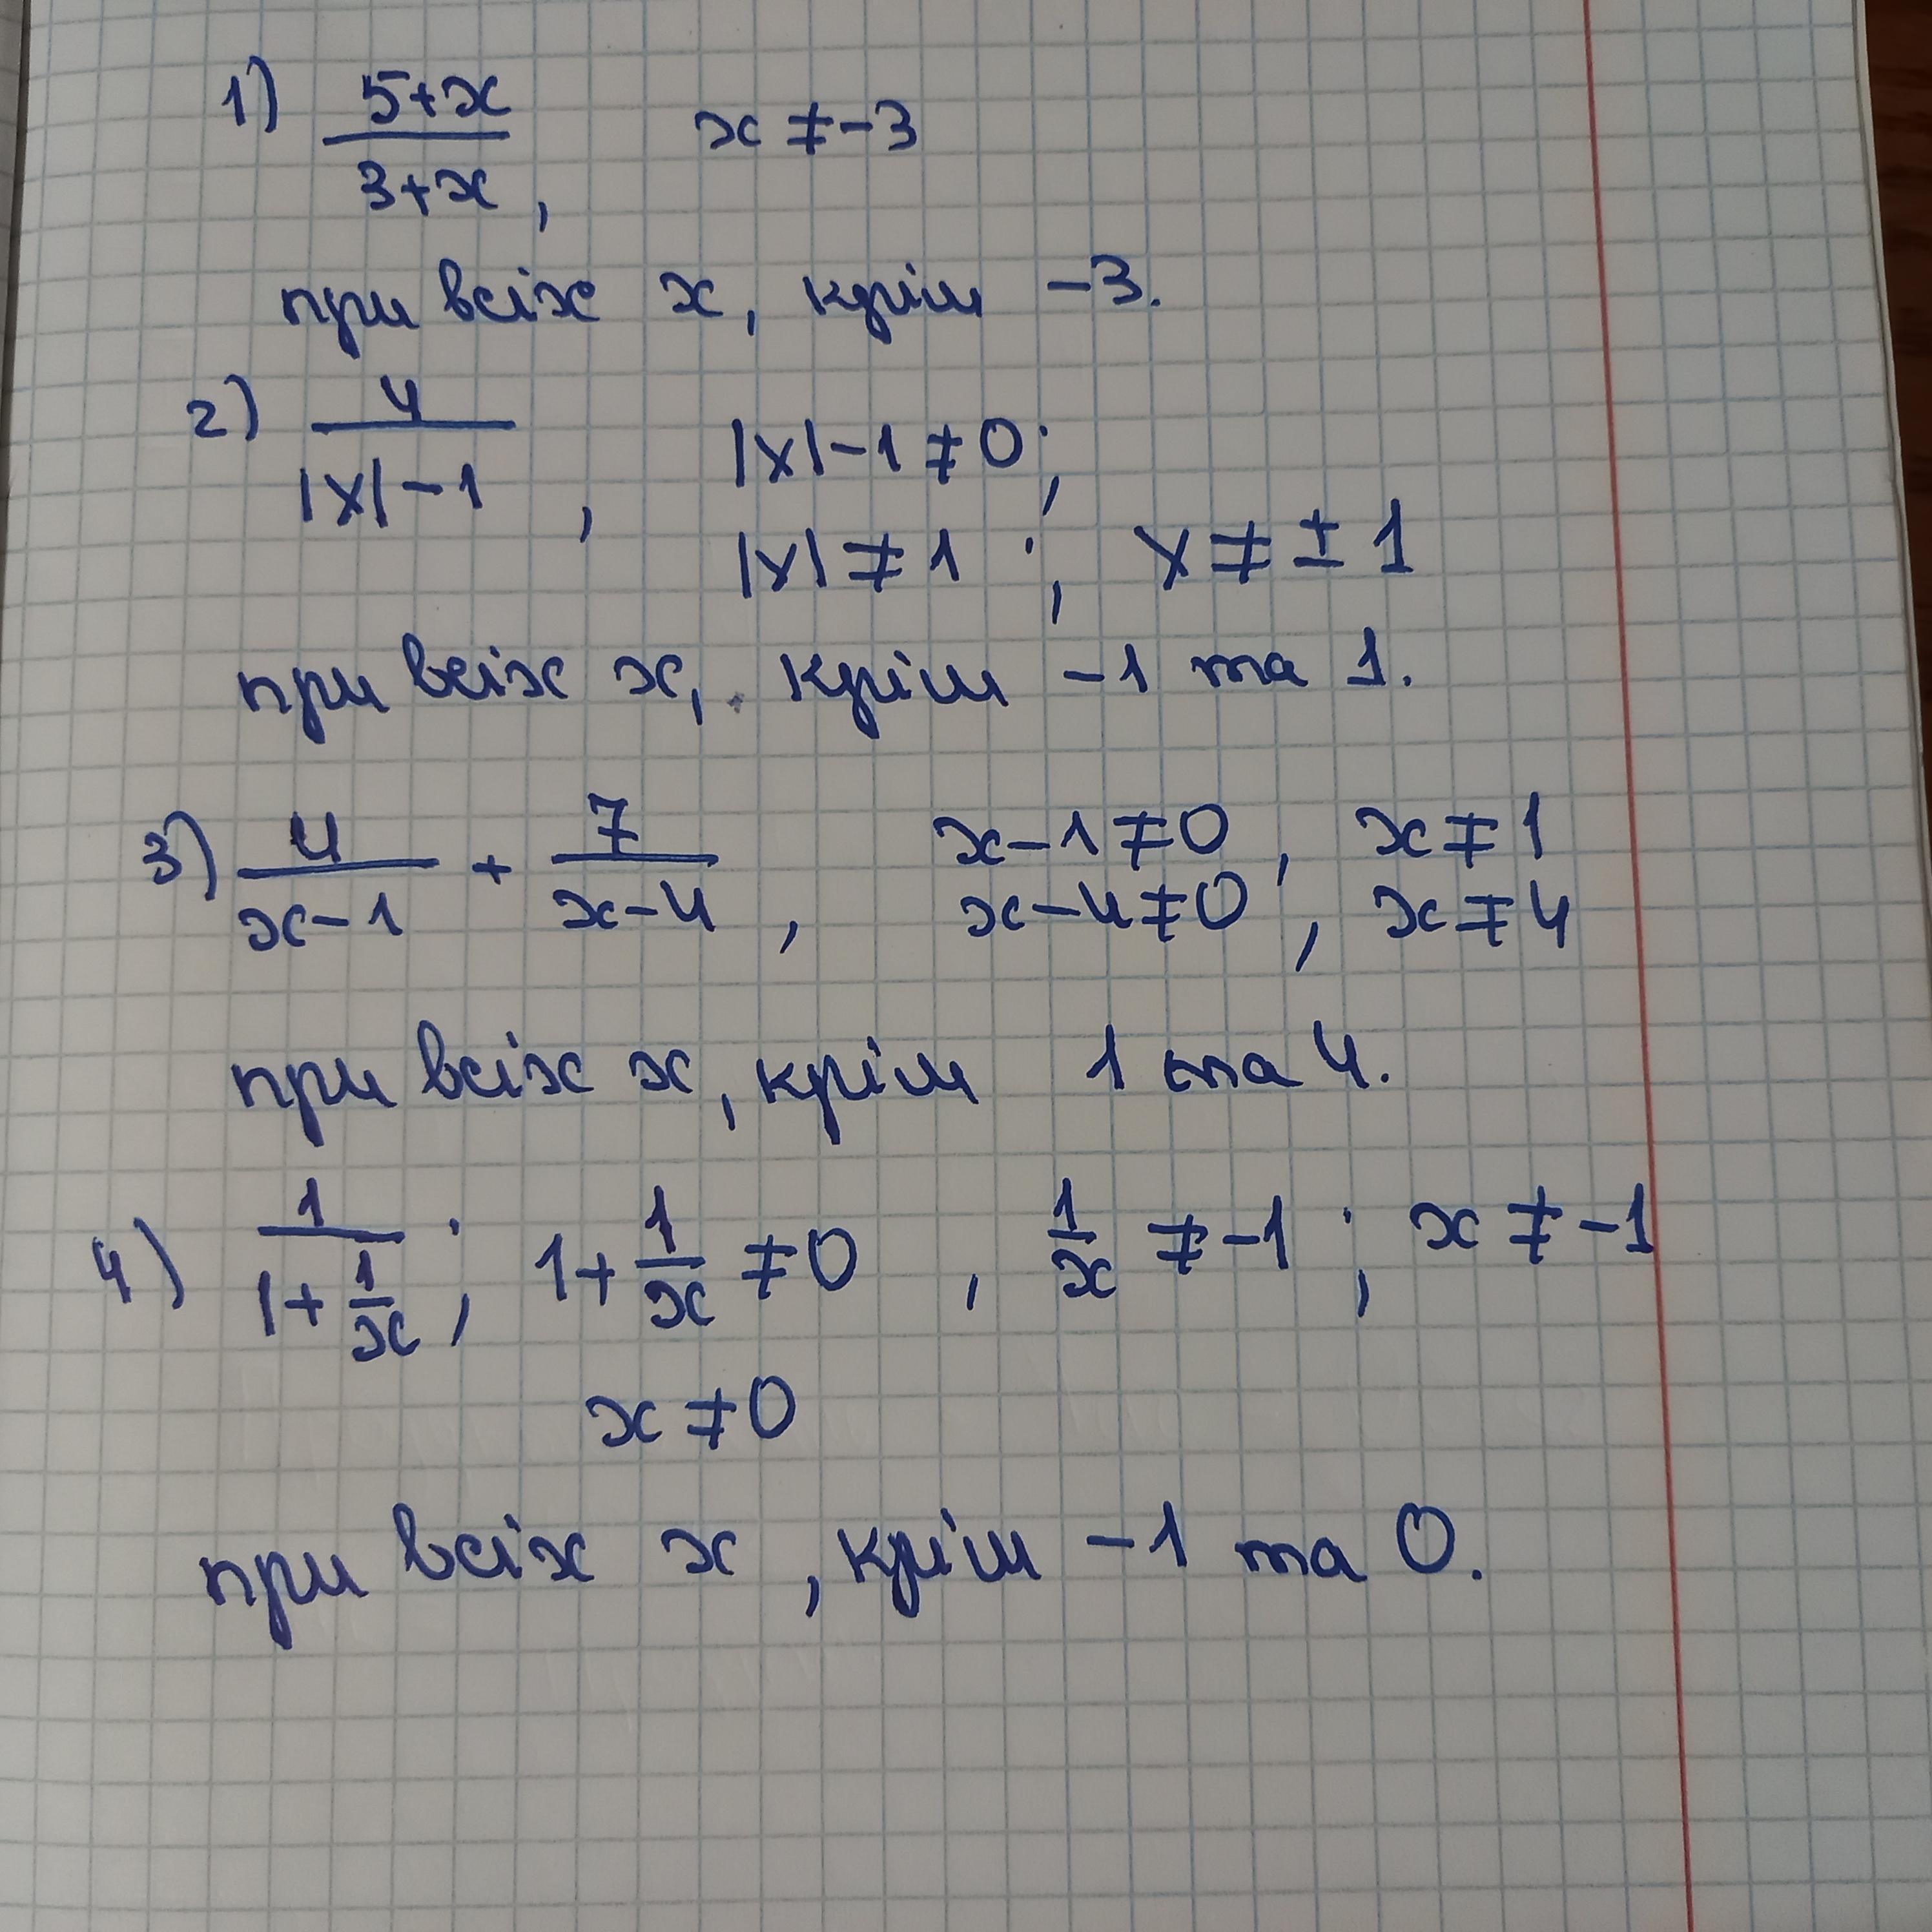 1) (5+x)/(3+x), x ≠ -3
при всіх x, крім -3.
2) 4/(|x|-1), |x|-1 ≠ 0;
|x| ≠ 1; x ≠ ±1
при всіх x, крім -1 та 1.
3) 4/(x-1) + 7/(x-4), x-1 ≠ 0, x ≠ 1
x-4 ≠ 0, x ≠ 4
при всіх x, крім 1 та 4.
4) 1/(1+1/x); 1+1/x ≠ 0, 1/x ≠ -1; x ≠ -1
x ≠ 0
при всіх x, крім -1 та 0.